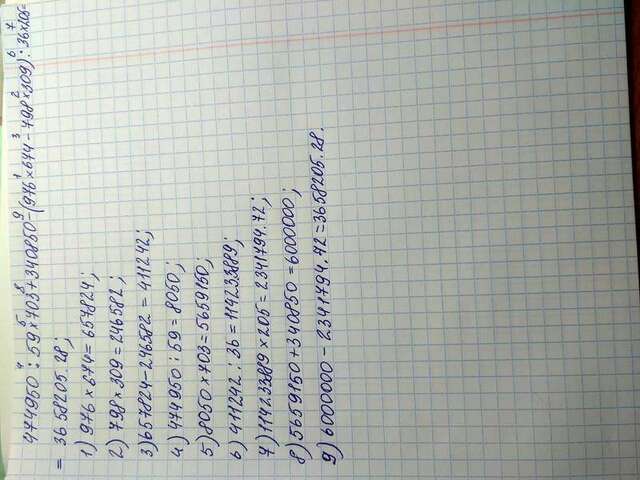 474950 : 59 × 703 + 340850 - (976 × 674 - 798 × 309) : 36 × 205 =
= 3658205.28;
1) 976 × 674 = 657824;
2) 798 × 309 = 246582;
3) 657824 - 246582 = 411242;
4) 474950 : 59 = 8050;
5) 8050 × 703 = 5659150;
6) 411242 : 36 = 11423.3889;
7) 11423.3889 × 205 = 2341794.72;
8) 5659150 + 340850 = 6000000;
9) 6000000 - 2341794.72 = 3658205.28.